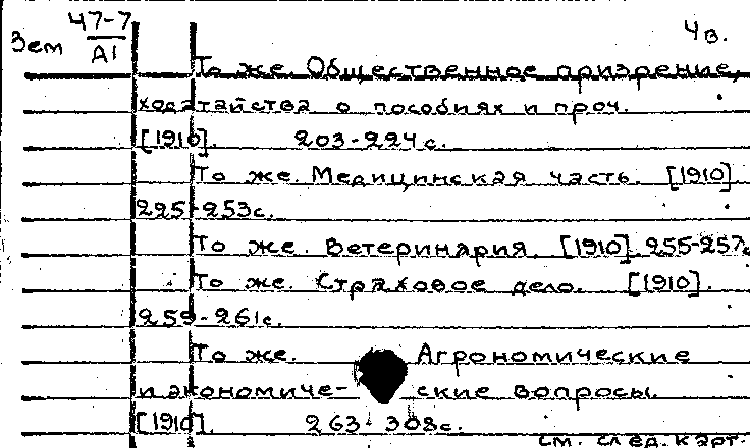 Зем 47-7/А1
4в.
То же. Общественное призрение,
ходатайства о пособиях и проч.
[1910]. 203-224с.
То же. Медицинская часть. [1910]
225-253с.
То же. Ветеринария. [1910]. 255-257с
То же. Страховое дело. [1910].
259-261с.
То же. Агрономические
и экономиче- ские вопросы.
[1910]. 263-308с.
см. след. карт